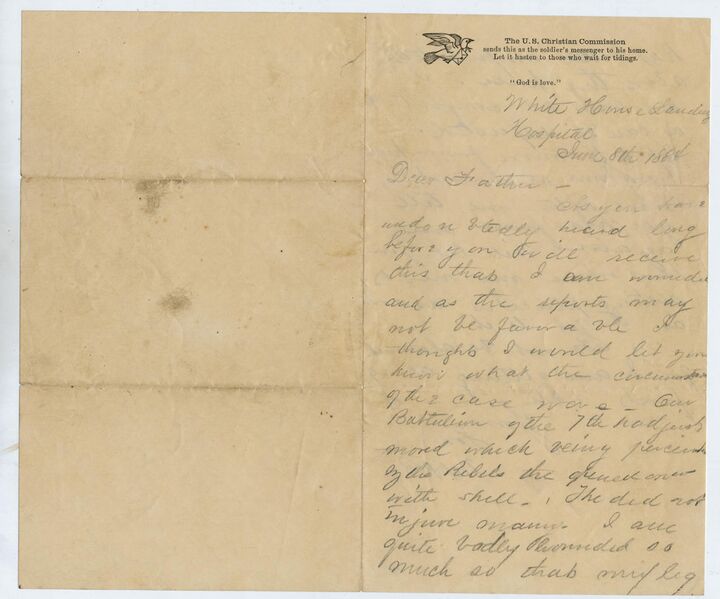 The U. S. Christian Commission
sends this as the soldier's messenger to his home.
Let it hasten to those who wait for tidings.
"God is love."
White House Landing
Hospital
June 8th 1864
Dear Father –
As you have
undoubtedly heard long
before you will receive
this that I am wounded
and as the reports may
not be favorable I
thought I would let you
know what the circumstances
of the case were – Our
Battalion of the 7th had just
moved which being perceived
by the Rebels the opened on us
with shell –. The did not
injure many. I am
quite badly Wounded so
much so that my leg